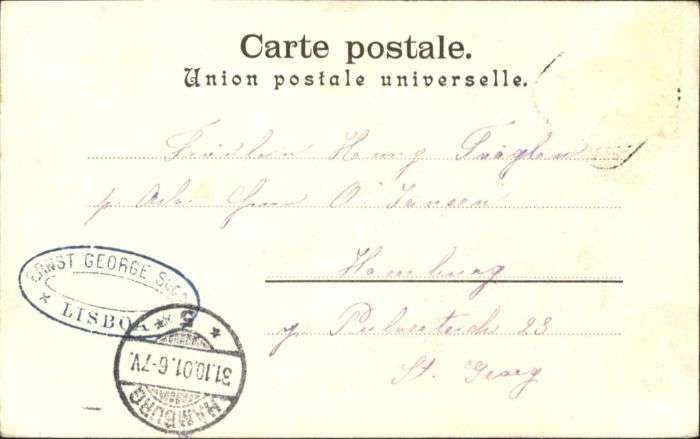 Carte postale.
Union postale universelle.
Fräulein Henny
p. Adr. Herrn O. Jansen
Hamburg
Pulverteich 23
St. Georg
ERNST GEORGE
LISBOA
* 5 *
31.10.01.6-7V.
HAMBURG